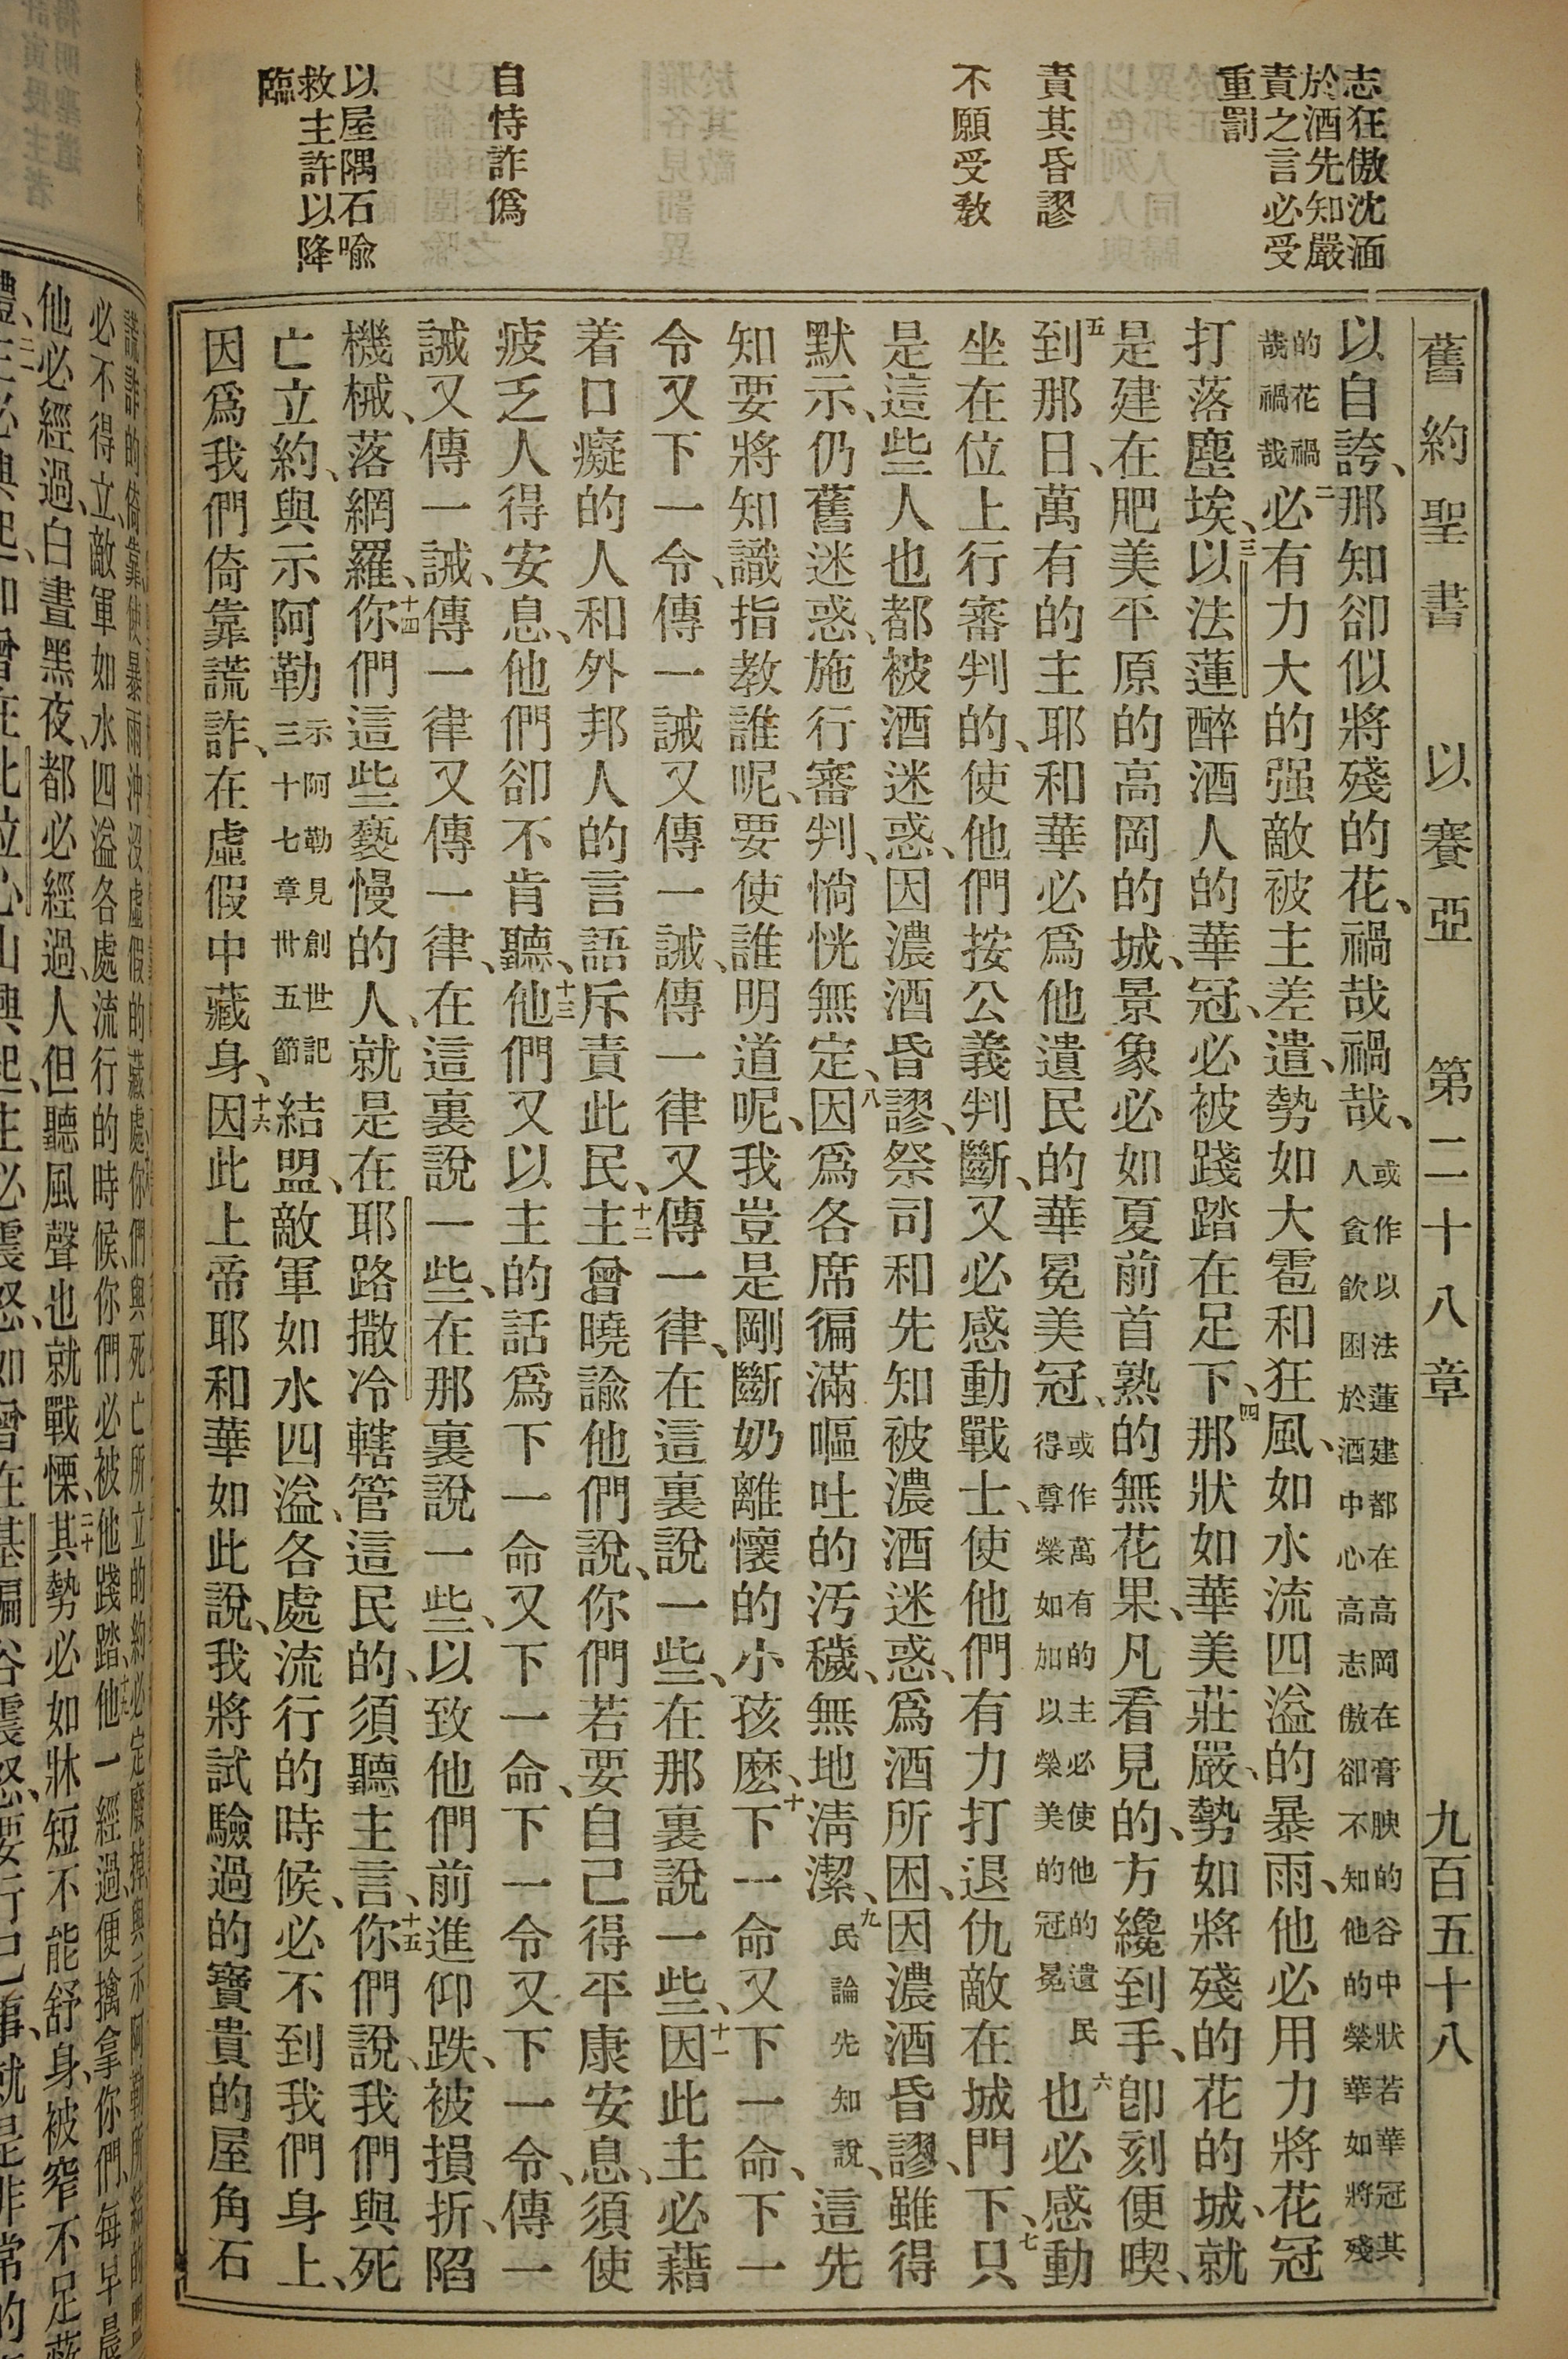 舊約聖書 以賽亞 第二十八章 九百五十八
志狂傲沈湎
於酒先知嚴
責之言必受
重罰
責其昏謬
不願受敎
自恃詐僞
以屋隅石喩
救主許以降
臨
以自誇、那知卻似將殘的花、禍哉禍哉、或作以法蓮建都在高岡在膏腴的谷中狀若華冠其人貪飲困於酒中心高志傲卻不知他的榮華如將殘
的花禍哉禍哉二必有力大的强敵被主差遣、勢如大雹和狂風、如水流四溢的暴雨、他必用力將花冠
打落塵埃、三以法蓮醉酒人的華冠、必被踐踏在足下、四那狀如華美莊嚴、勢如將殘的花的城、就
是建在肥美平原的高岡的城、景象必如夏前首熟的無花果、凡看見的、方纔到手、卽刻便喫、
五到那日、萬有的主耶和華必爲他遺民的華冕美冠、或作萬有的主必使他的遺民得尊榮如加以榮美的冠冕六也必感動
坐在位上行審判的、使他們按公義判斷、又必感動戰士、使他們有力打退仇敵在城門下、七只
是這些人也都被酒迷惑、因濃酒昏謬、祭司和先知被濃酒迷惑、爲酒所困、因濃酒昏謬、雖得
默示、仍舊迷惑、施行審判、惝恍無定、八因爲各席徧滿嘔吐的汚穢、無地淸潔、九民論先知說、這先
知要將知識指教誰呢、要使誰明道呢、我豈是剛斷奶離懷的小孩麽、十下一命又下一命、下一
令又下一令、傳一誡又傳一誡、傳一律又傳一律、在這裏說一些、在那裏說一些、十一因此主必藉
着口癡的人和外邦人的言語斥責此民、十二主曾曉諭他們說、你們若要自己得平康安息、須使
疲乏人得安息、他們卻不肯聽、十三他們又以主的話爲下一命又下一命、下一令又下一令、傳一
誡又傳一誡、傳一律又傳一律、在這裏說一些、在那裏說一些、以致他們前進仰跌、被損折、陷
機械、落網羅、十四你們這些褻慢的人、就是在耶路撒冷轄管這民的、須聽主言、十五你們說、我們與死
亡立約、與示阿勒示阿勒見創世記三十七章卅五節結盟、敵軍如水四溢、各處流行的時候、必不到我們身上、
因爲我們倚靠謊詐、在虛假中藏身、十六因此上帝耶和華如此說、我將試驗過的寶貴的屋角石
謊詐的倚靠、使暴雨沖沒虛假的藏處、你們與死亡所立的約必定廢掉、與示阿勒所結的
必不得立、敵軍如水四溢各處流行的時候、你們必被他踐踏、他一經過、便擒拿你們、每早晨
他必經過、白晝黑夜、都必經過、人但聽風聲也就戰慄、二十其勢必如牀短不能舒身、被窄不足